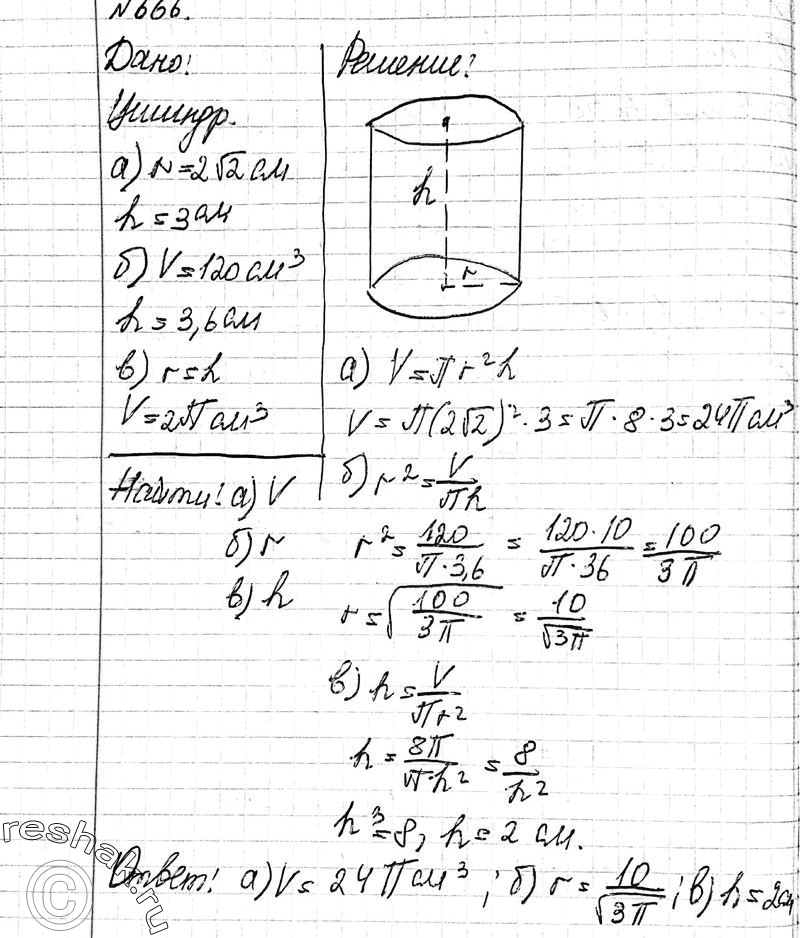 №666.
Дано:
Цилиндр.
а) r=2√2 см
h=3 см
б) V=120 см³
h=3,6 см
в) r=h
V=2П см³
Найти: а) V
б) r
в) h
Решение:
h
r
а) V=πr²h
V=π(2√2)²·3=π·8·3=24π см³
б) r²=V/πh
r²=120/π·3,6 = 120·10/π·36 = 100/3π
r=√100/3π = 10/√3π
в) h=V/πr²
h=8π/π·h² = 8/h²
h³=8, h=2 см.
Ответ: а) V=24π см³; б) r=10/√3π; в) h=2см
reshak.ru
©